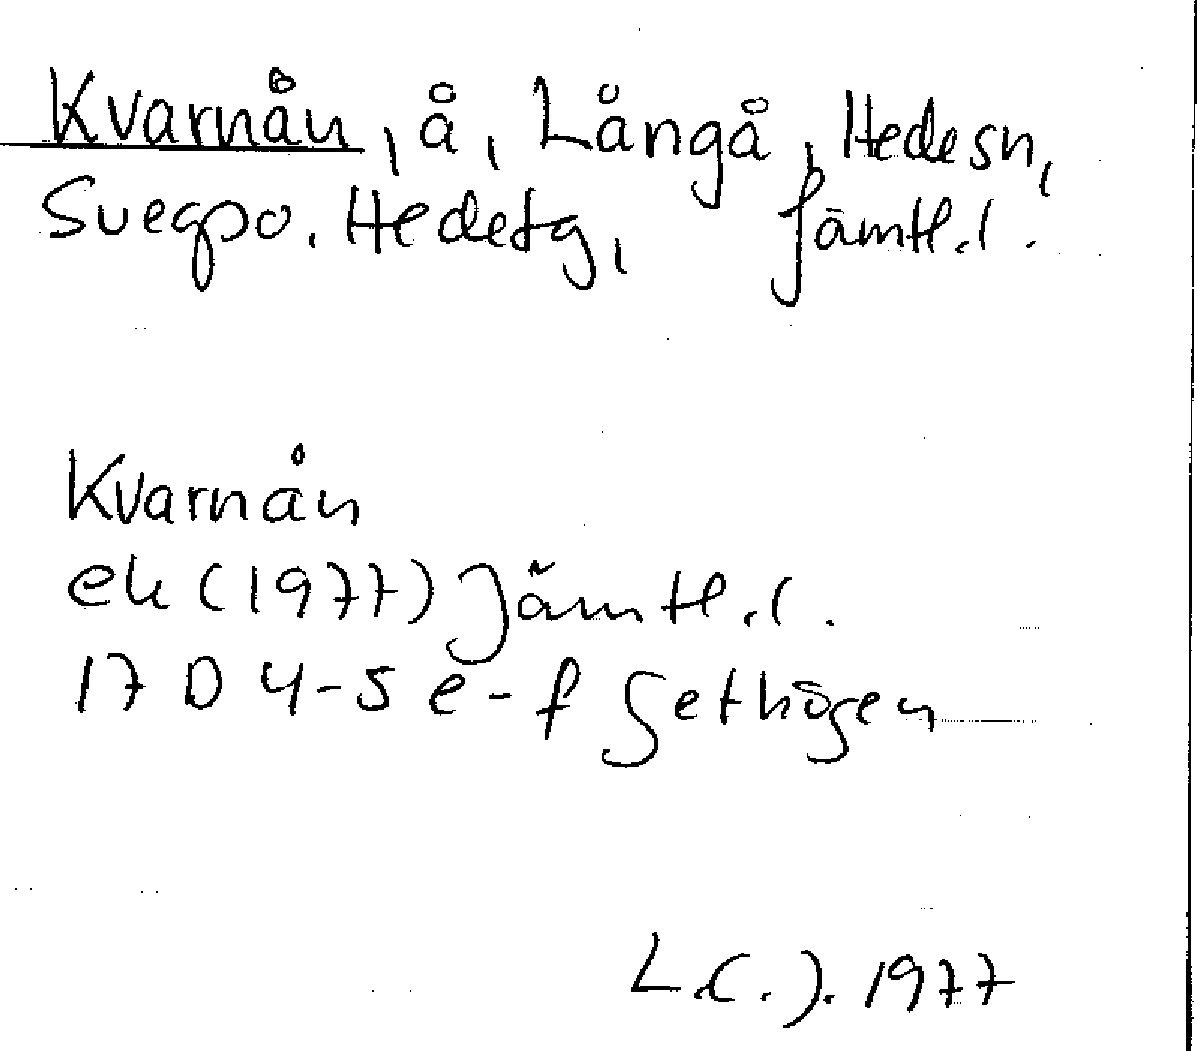 Kvarnån, å, Långå, Hedesn,
Svegpo. Hedetg, Jämtl.l.
Kvarnån
ek (1977) Jämtl.l.
17 D 4-5 e-f Gethögen
L.C.J. 1977